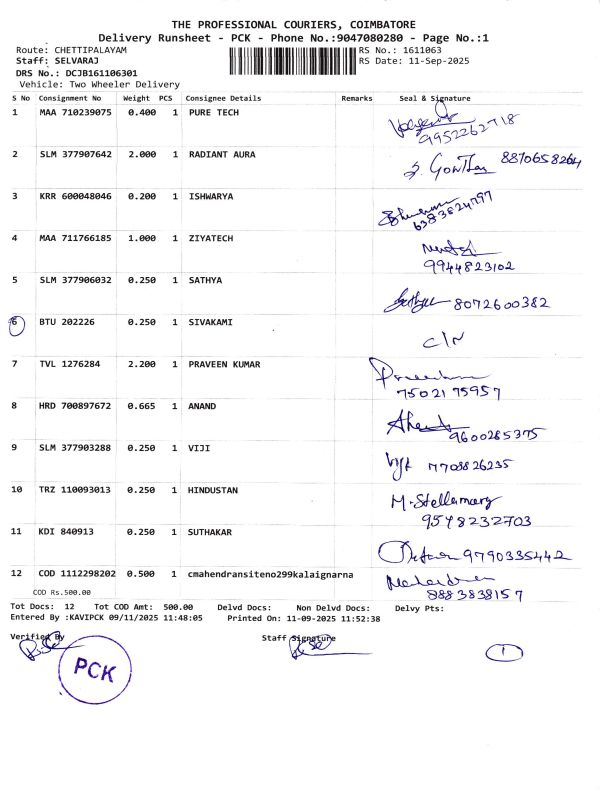 THE PROFESSIONAL COURIERS, COIMBATORE
Delivery Runsheet - PCK - Phone No.:9047080280 - Page No.:1
Route: CHETTIPALAYAM RS No.: 1611063
Staff: SELVARAJ RS Date: 11-Sep-2025
DRS No.: DCJB161106301
Vehicle: Two Wheeler Delivery
S No Consignment No Weight PCS Consignee Details Remarks Seal & Signature
1 MAA 710239075 0.400 1 PURE TECH
9952262718
2 SLM 377907642 2.000 1 RADIANT AURA
8870658264
3 KRR 600048046 0.200 1 ISHWARYA
6383824797
4 MAA 711766185 1.000 1 ZIYATECH
9944823102
5 SLM 377906032 0.250 1 SATHYA
8072600382
6 BTU 202226 0.250 1 SIVAKAMI
C/N
7 TVL 1276284 2.200 1 PRAVEEN KUMAR
7502175957
8 HRD 700897672 0.665 1 ANAND
9600285375
9 SLM 377903288 0.250 1 VIJI
7708826235
10 TRZ 110093013 0.250 1 HINDUSTAN
M. Stellamary
9578232703
11 KDI 840913 0.250 1 SUTHAKAR
9790335442
12 COD 1112298202 0.500 1 cmahendransiteno299kalaignarna
8883838157
COD Rs.500.00
Tot Docs: 12 Tot COD Amt: 500.00 Delvd Docs: Non Delvd Docs: Delvy Pts:
Entered By :KAVIPCK 09/11/2025 11:48:05 Printed On: 11-09-2025 11:52:38
Verified By Staff Signature
PCK
1